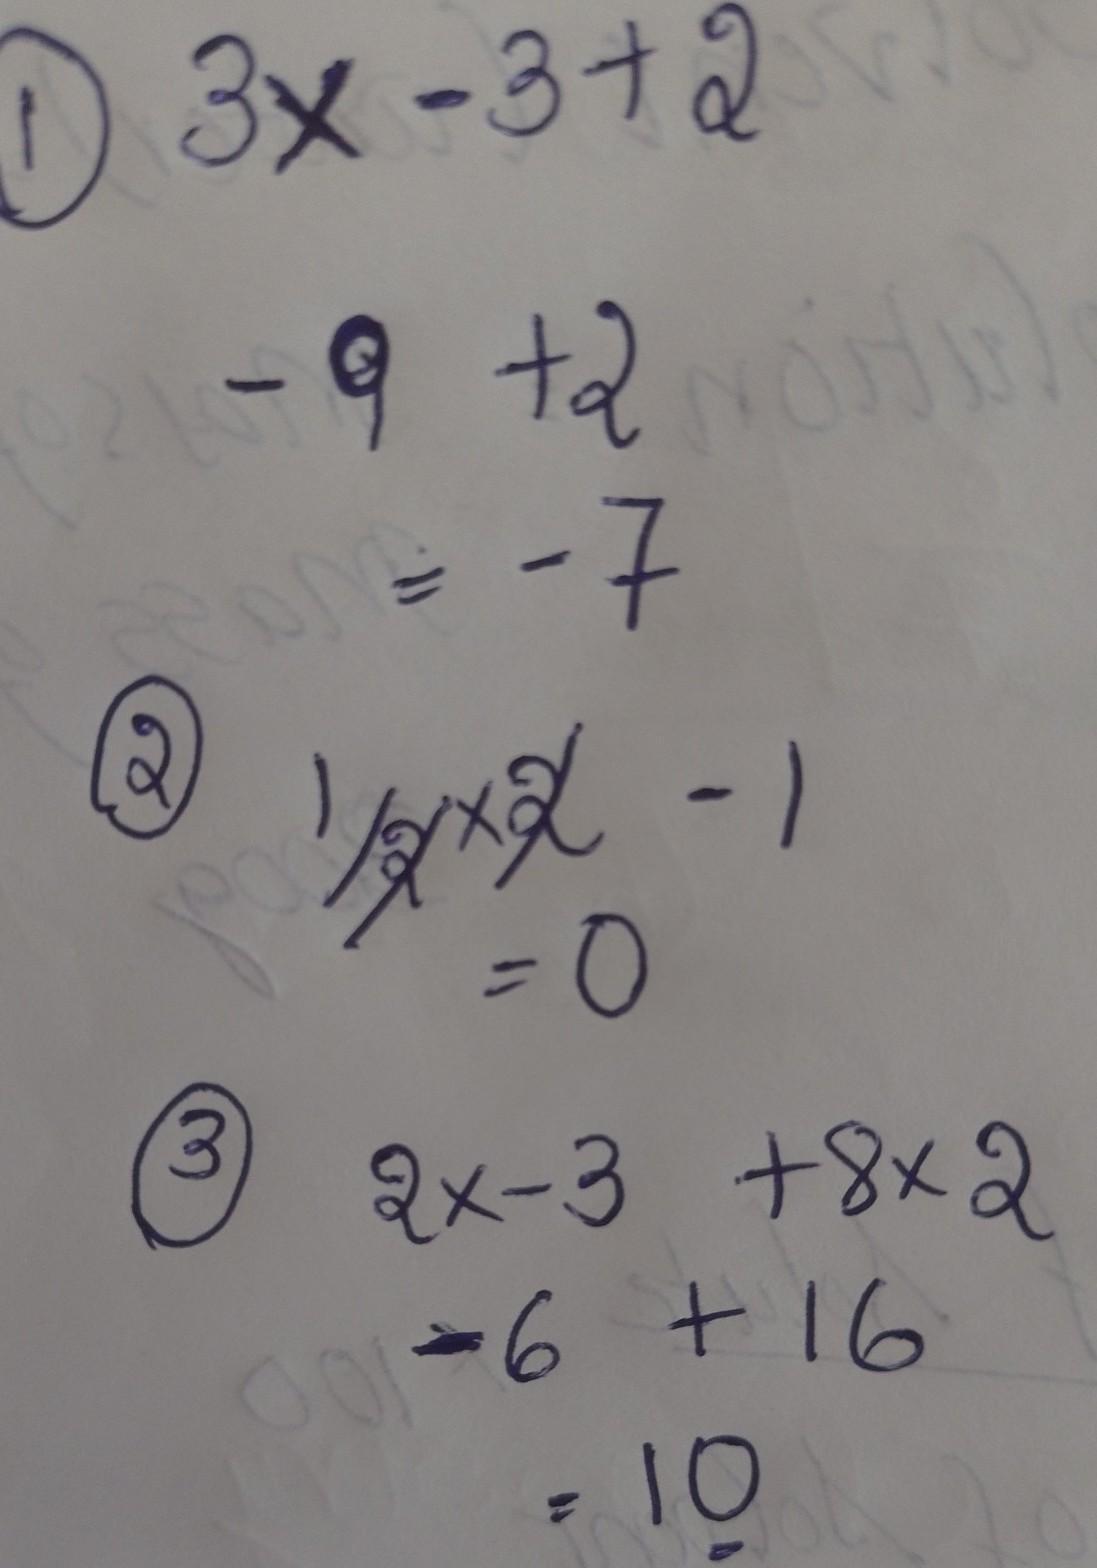 ① 3x - 3 + 2
- 9 + 2
= - 7
② 1/2 x 2 - 1
= 0
③ 2x - 3 + 8 x 2
- 6 + 16
= 10